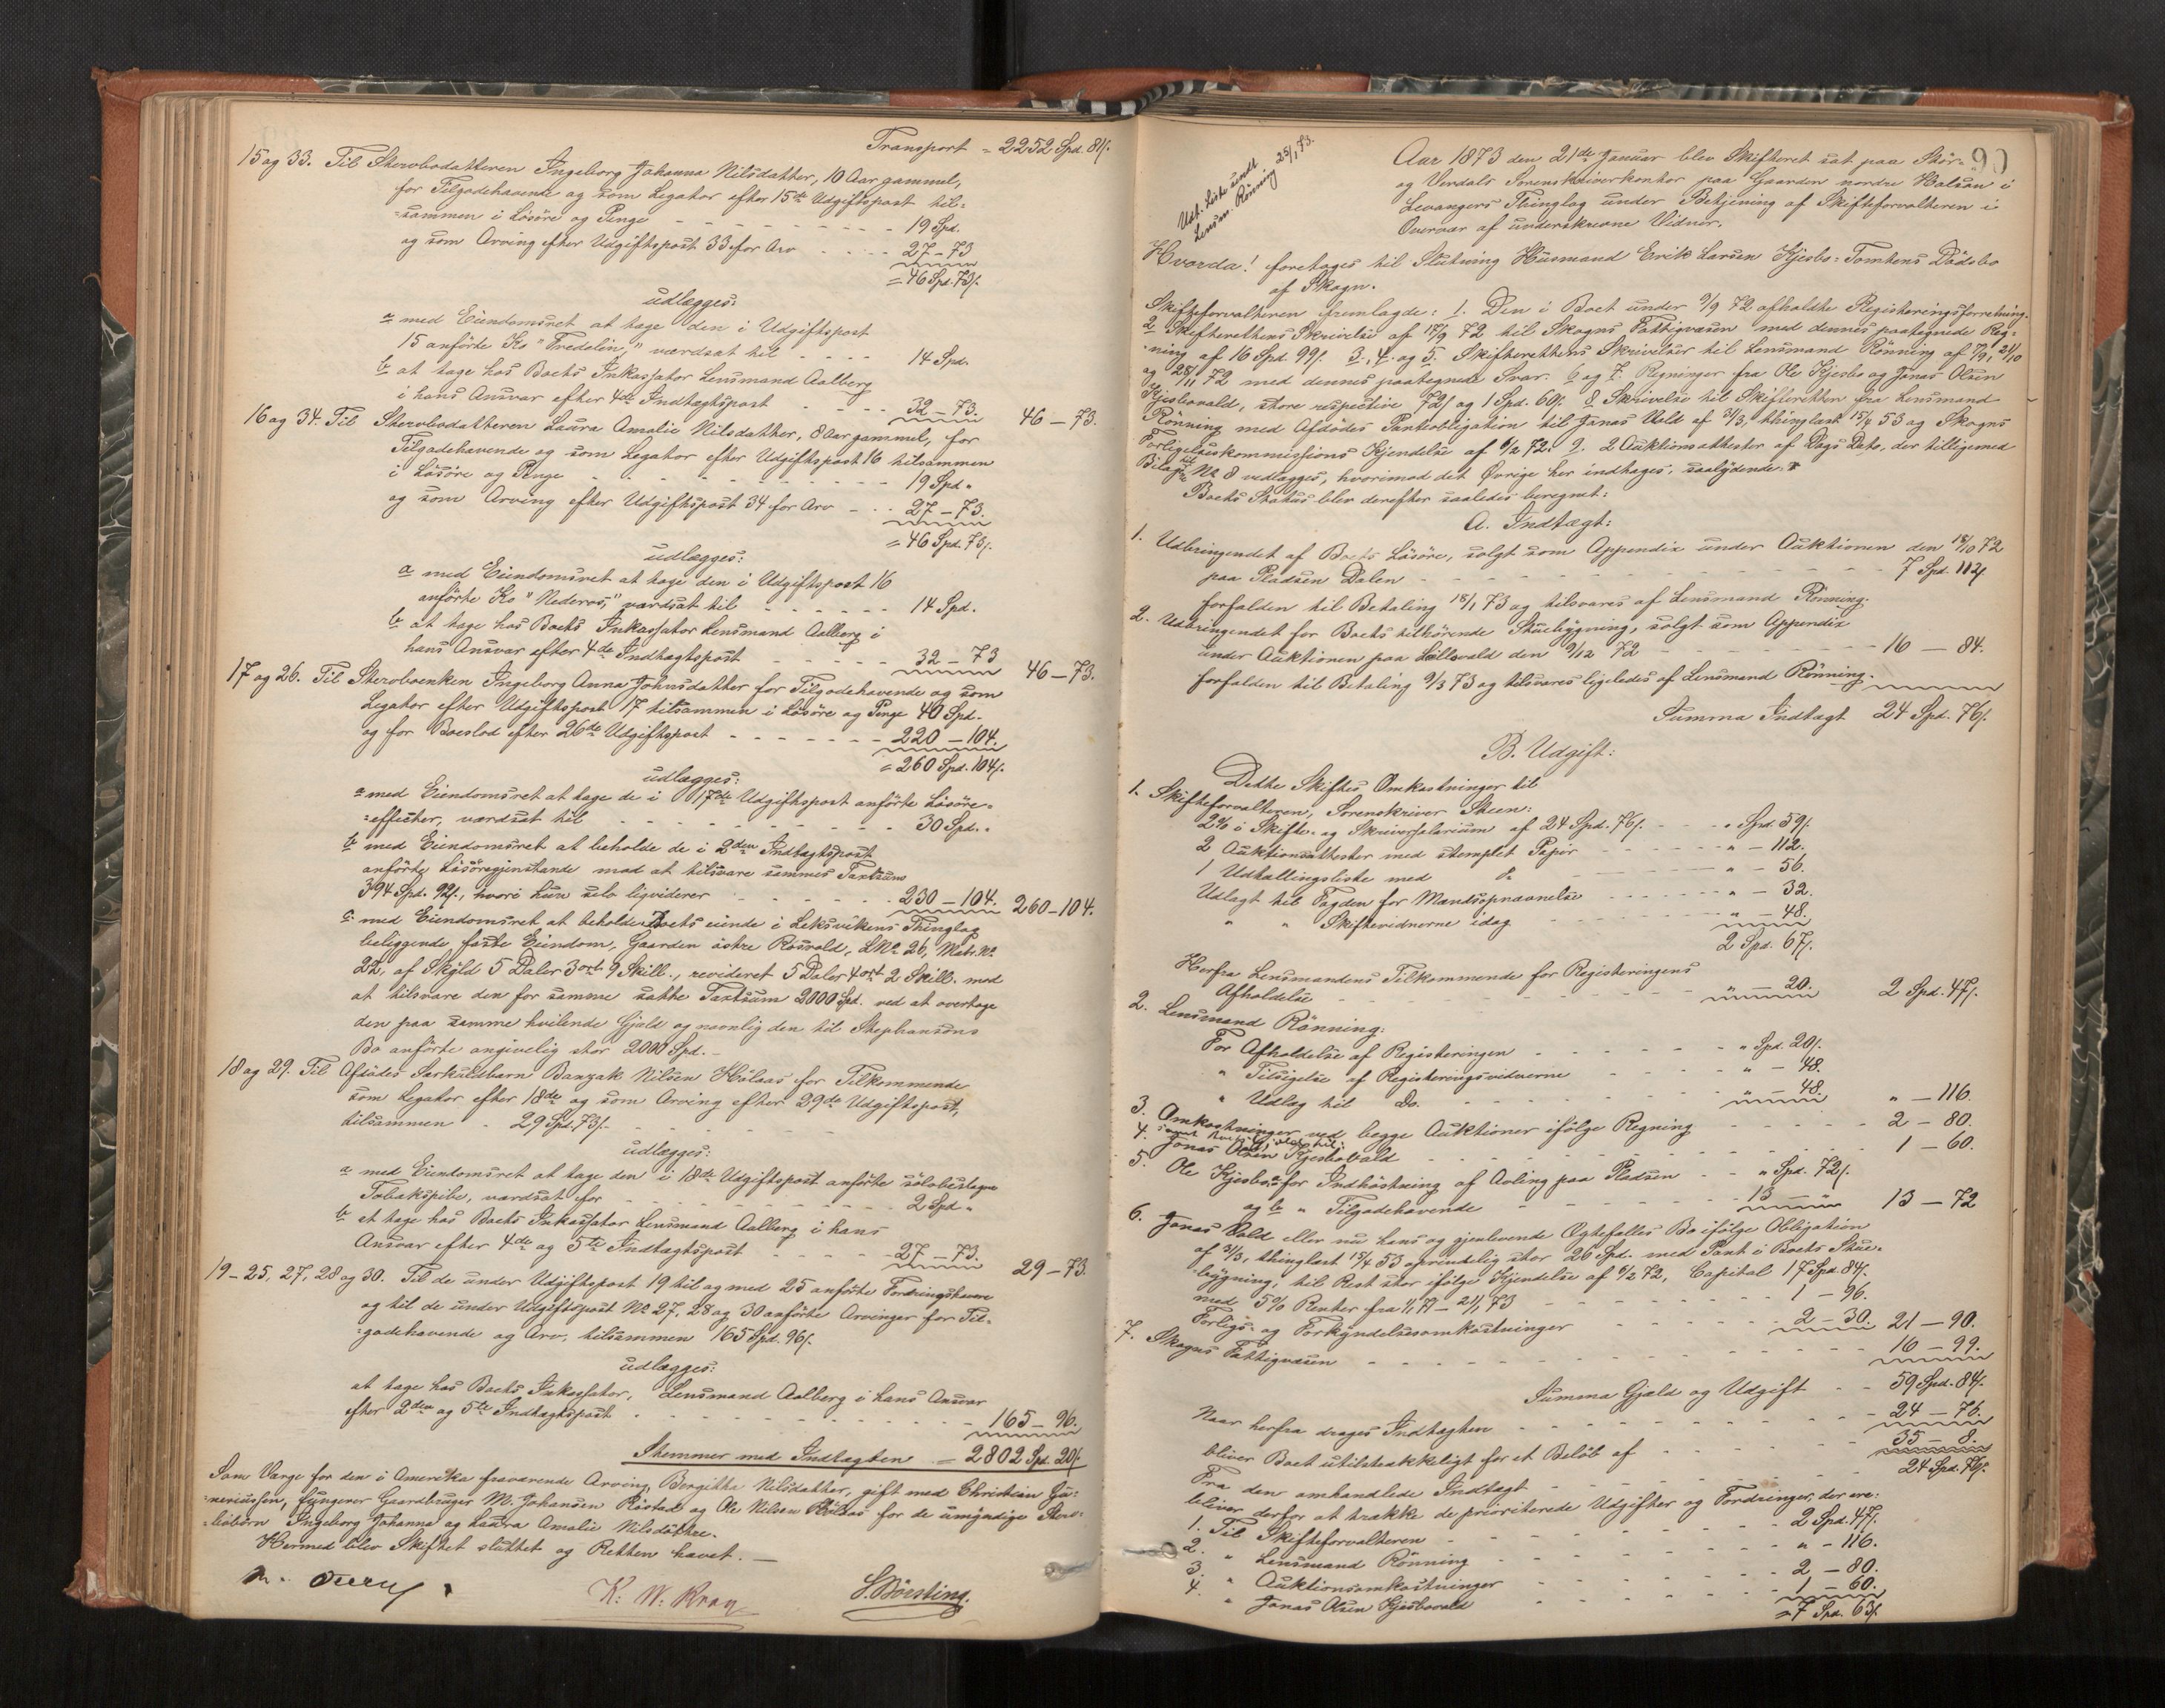 Transport = 2252 Spd. 81/.
15 og 33. Til Stervbodatteren Ingeborg Johanna Nilsdatter, 10 Aar gammel,
for Tilgodehavende og som Legator efter 15de Udgiftspost til-
=sammen i Løsøre og Penge - - - - - 19 Spd.
og som Arving efter Udgiftspost 33 for Arv - - - - 27 – 73
= 46 Spd. 73/.
udlægges:
a med Eiendomsret at tage den i Udgiftspost
15 anførte Ko "Fredelin," værdsat til - - - - 14 Spd.
b at tage hos Boets Inkassator Lensmand Aalberg
i hans Ansvar efter 4de Indtægtspost - - - - 32 – 73. 46 – 73.
16 og 34. Til Stervbodatteren Laura Amalie Nilsdatter, 8 Aar gammel, for
Tilgodehavende og som Legator efter Udgiftspost 16 tilsammen
i Løsøre og Penge - - - - - 19 Spd. "
og som Arving efter Udgiftspost 34 for Arv - - - 27 – 73.
= 46 Spd. 73/.
udlægges:
a med Eiendomsret at tage den i Udgiftspost 16
anførte Ko "Nederos," værdsat til - - - - - 14 Spd.
b at tage hos Boets Inkassator Lensmand Aalberg i
hans Ansvar efter 4de Indtægtspost - - - - - 32 – 73 46 – 73.
17 og 26. Til Stervboenken Ingeborg Anna Johnsdatter for Tilgodehavende og som
Legator efter Udgiftspost 17 tilsammen i Løsøre og Penge 40 Spd.
og for Boeslod efter 26de Udgiftspost - - - - - 220 – 104.
= 260 Spd. 104/.
udlægges:
a med Eiendomsret at tage de i 17de Udgiftspost anførte Løsøre-
=effecter, værdsat til - - - - - 30 Spd. "
b med Eiendomsret at beholde de i 2den Indtægtspost
anførte Løsøregjenstande mod at tilsvare sammes Taxtsum
394 Spd. 92/., hvori hun selv ligviderer - - - - 230 – 104. 260 – 104.
c. med Eiendomsret at beholde Boets eiende i Leksvikens Thinglag
beliggende faste Eiendom, Gaarden østre Rosvold, LNo 26, Matr. No
22, af Skyld 5 Daler 3 ort 9 Skill., revideret 5 Daler 4 ort 2 Skill. mod
at tilsvare den for samme satte Taxtsum 2000 Spd. ved at overtage
den paa samme hvilende Gjæld og navnlig den til Stephansens
Bo anførte angivelig stor 2000 Spd. –
18 og 29. Til Afdødes Særkuldbarn Banzak Nilsen Hølaas for Tilkommende
som Legator efter 18de og som Arving efter 29de Udgiftspost,
tilsammen - 29 Spd. 73/. - - - -
udlægges:
a med Eiendomsret at tage den i 18de Udgiftspost anførte sølvbeslagne
Tobakspibe, værdsat for - - - - - 2 Spd. "
b at tage hos Boets Inkassator Lensmand Aalberg i hans
Ansvar efter 4de og 5te Indtægtspost - - - - - 27 – 73. 29 – 73.
19 – 25, 27, 28 og 30. Til de under Udgiftspost 19 til og med 25 anførte Fordringshavere
og til de under Udgiftspost No 27, 28 og 30 anførte Arvinger for Til-
=godehavende og Arv, tilsammen 165 Spd. 96/.
udlægges:
at tage hos Boets Inkassator, Lensmand Aalberg i hans Ansvar
efter 2den og 5te Indtægtspost - - - - - 165 – 96.
Stemmer med Indtægten = 2802 Spd. 20/.
Som Værge for den i Amerika fraværende Arving, Bergitha Nilsdatter, gift med Christian
fungerer Gaardbruger M. Johansen Ristad og Ole Nilsen Hølaas for de umyndige Sterv-
=bobørn Ingeborg Johanna og Laura Amalie Nilsdøttre.
Hermed blev Skiftet sluttet og Retten hævet. –
K. W. Kray S. Børsting.
90
Udt. Liste sendt
Lensm. Rönning 25/1 73.
Aar 1873 den 21de Januar blev Skifteret sat paa Stør-
og Værdals Sorenskriverkontor paa Gaarden nordre Halsan i
Levangers Thinglag under Betjening af Skifteforvalteren i
Overvær af underskrevne Vidner.
Hvorda! foretoges til Slutning Husmand Erik Larsen Kjesbo-Tomtens Dødsbo
af Skogn.
Skifteforvalteren fremlagde: 1. Den i Boet under 9/9 72 afholdte Registeringsforretning.
2 Skifterettens Skrivelse af 17/9 72 til Skogns Fattigvæsen med dennes paategnede Reg-
=ning af 16 Spd. 99/. 3, 4. og 5. Skifterettens Skrivelser til Lensmand Rönning af 7/9, 21/10
og 28/11 72 med dennes paategnede Svar. 6 og 7. Regninger fra Ole Kjesbo og Jonas Olsen
Kjesbovald, store respective 72/ og 1 Spd. 60/. 8 Skrivelse til Skifteretten fra Lensmand
Rönning med Afdødes Pantobligation til Jonas Vold af 31/3, thinglæst 15/4 53 og Skogns
Forligelseskommissions Kjendelse af 6/2 72. 9. 2 Auktionsattester af Dags Dato, der tilligemed
Bilag til No 8 vedlægges, hvorimod det Øvrige her indtages, saalydende:
Boets Status blev derefter saaledes beregnet:
A. Indtægt:
1. Udbringendet af Boets Løsøre, solgt som Appendix under Auktionen den 18/10 72
paa Pladsen Dalen - - - - - 7 Spd. 112/.
forfalden til Betaling 18/1 73 og tilsvares af Lensmand Rönning.
2. Udbringendet for Boets tilhørende Stuebygning, solgt som Appendix
under Auktionen paa Lillevald den 9/12 72 - - - - 16 – 84.
forfalden til Betaling 9/3 73 og tilsvares ligeledes af Lensmand Rönning.
Summa Indtægt 24 Spd. 76/.
B. Udgift:
Dette Skiftes Omkostninger til
1. Skifteforvalteren, Sorenskriver Steen:
2% i Skifte- og Skriversalarium af 24 Spd. 76/. - - - " Spd. 59/.
2 Auktionsattester med stemplet Papir - - - - " – 112.
1 Udtællingsliste med do - - - - " – 56.
Udlagt til Fogden for Mandsopnævnelse - - - - " – 32.
" " Skiftevidnerne idag - - - - " – 48.
2 Spd. 67/.
Herfra Lensmandens Tilkommende for Registeringens
Afholdelse - - - - - " – 20. 2 Spd. 47/.
2. Lensmand Rönning:
For Afholdelse af Registeringen - - - - - " Spd. 20/.
" Tilsigelse af Registeringsvidnerne - - - - " – 48.
" Udlæg til Do. - - - - - " – 48. " – 116.
3. Omkostninger ved begge Auktioner ifølge Regning - - - - 2 – 80.
4. Jonas Olsen Kjesbovald - - - - - 1 – 60.
5. Ole Kjesbo a for Indhøstning af Avling paa Pladsen - - " Spd. 72/.
og b " Tilgodehavende - - - - - 13 – " 13 – 72
6. Jonas Vold eller nu hans og gjenlevende Ægtefælles Bo ifølge Obligation
af 31/3, thinglæst 15/4 53 oprindelig stor 26 Spd. med Pant i Boets Stue-
=bygning, til Rest stor ifølge Kjendelse af 6/2 72, Capital 17 Spd. 84/.
med 5% Renter fra - 21/1 73 - - - - 1 – 96.
Forligs- og Forkyndelsesomkostninger - - - - 2 – 30. 21 – 90.
7. Skogns Fattigvæsen - - - - - 16 – 99.
Summa Gjæld og Udgift - - 59 Spd. 84/.
Naar herfra drages Indtægten - - - - - 24 – 76.
bliver Boet utilstrækkeligt for et Beløb af - - - - 35 – 8.
Fra den omhandlede Indtægt - - - - - 24 Spd. 76/.
bliver derfor at trække de prioriterede Udgifter og Fordringer, der ere:
1. Til Skifteforvalteren - - - - - 2 Spd. 47/.
2. " Lensmand Rönning - - - - - " – 116.
3. " Auktionsomkostninger - - - - - 2 – 80.
4. " Jonas Olsen Kjesbovald - - - - - 1 – 60.
= 7 Spd. 63/.